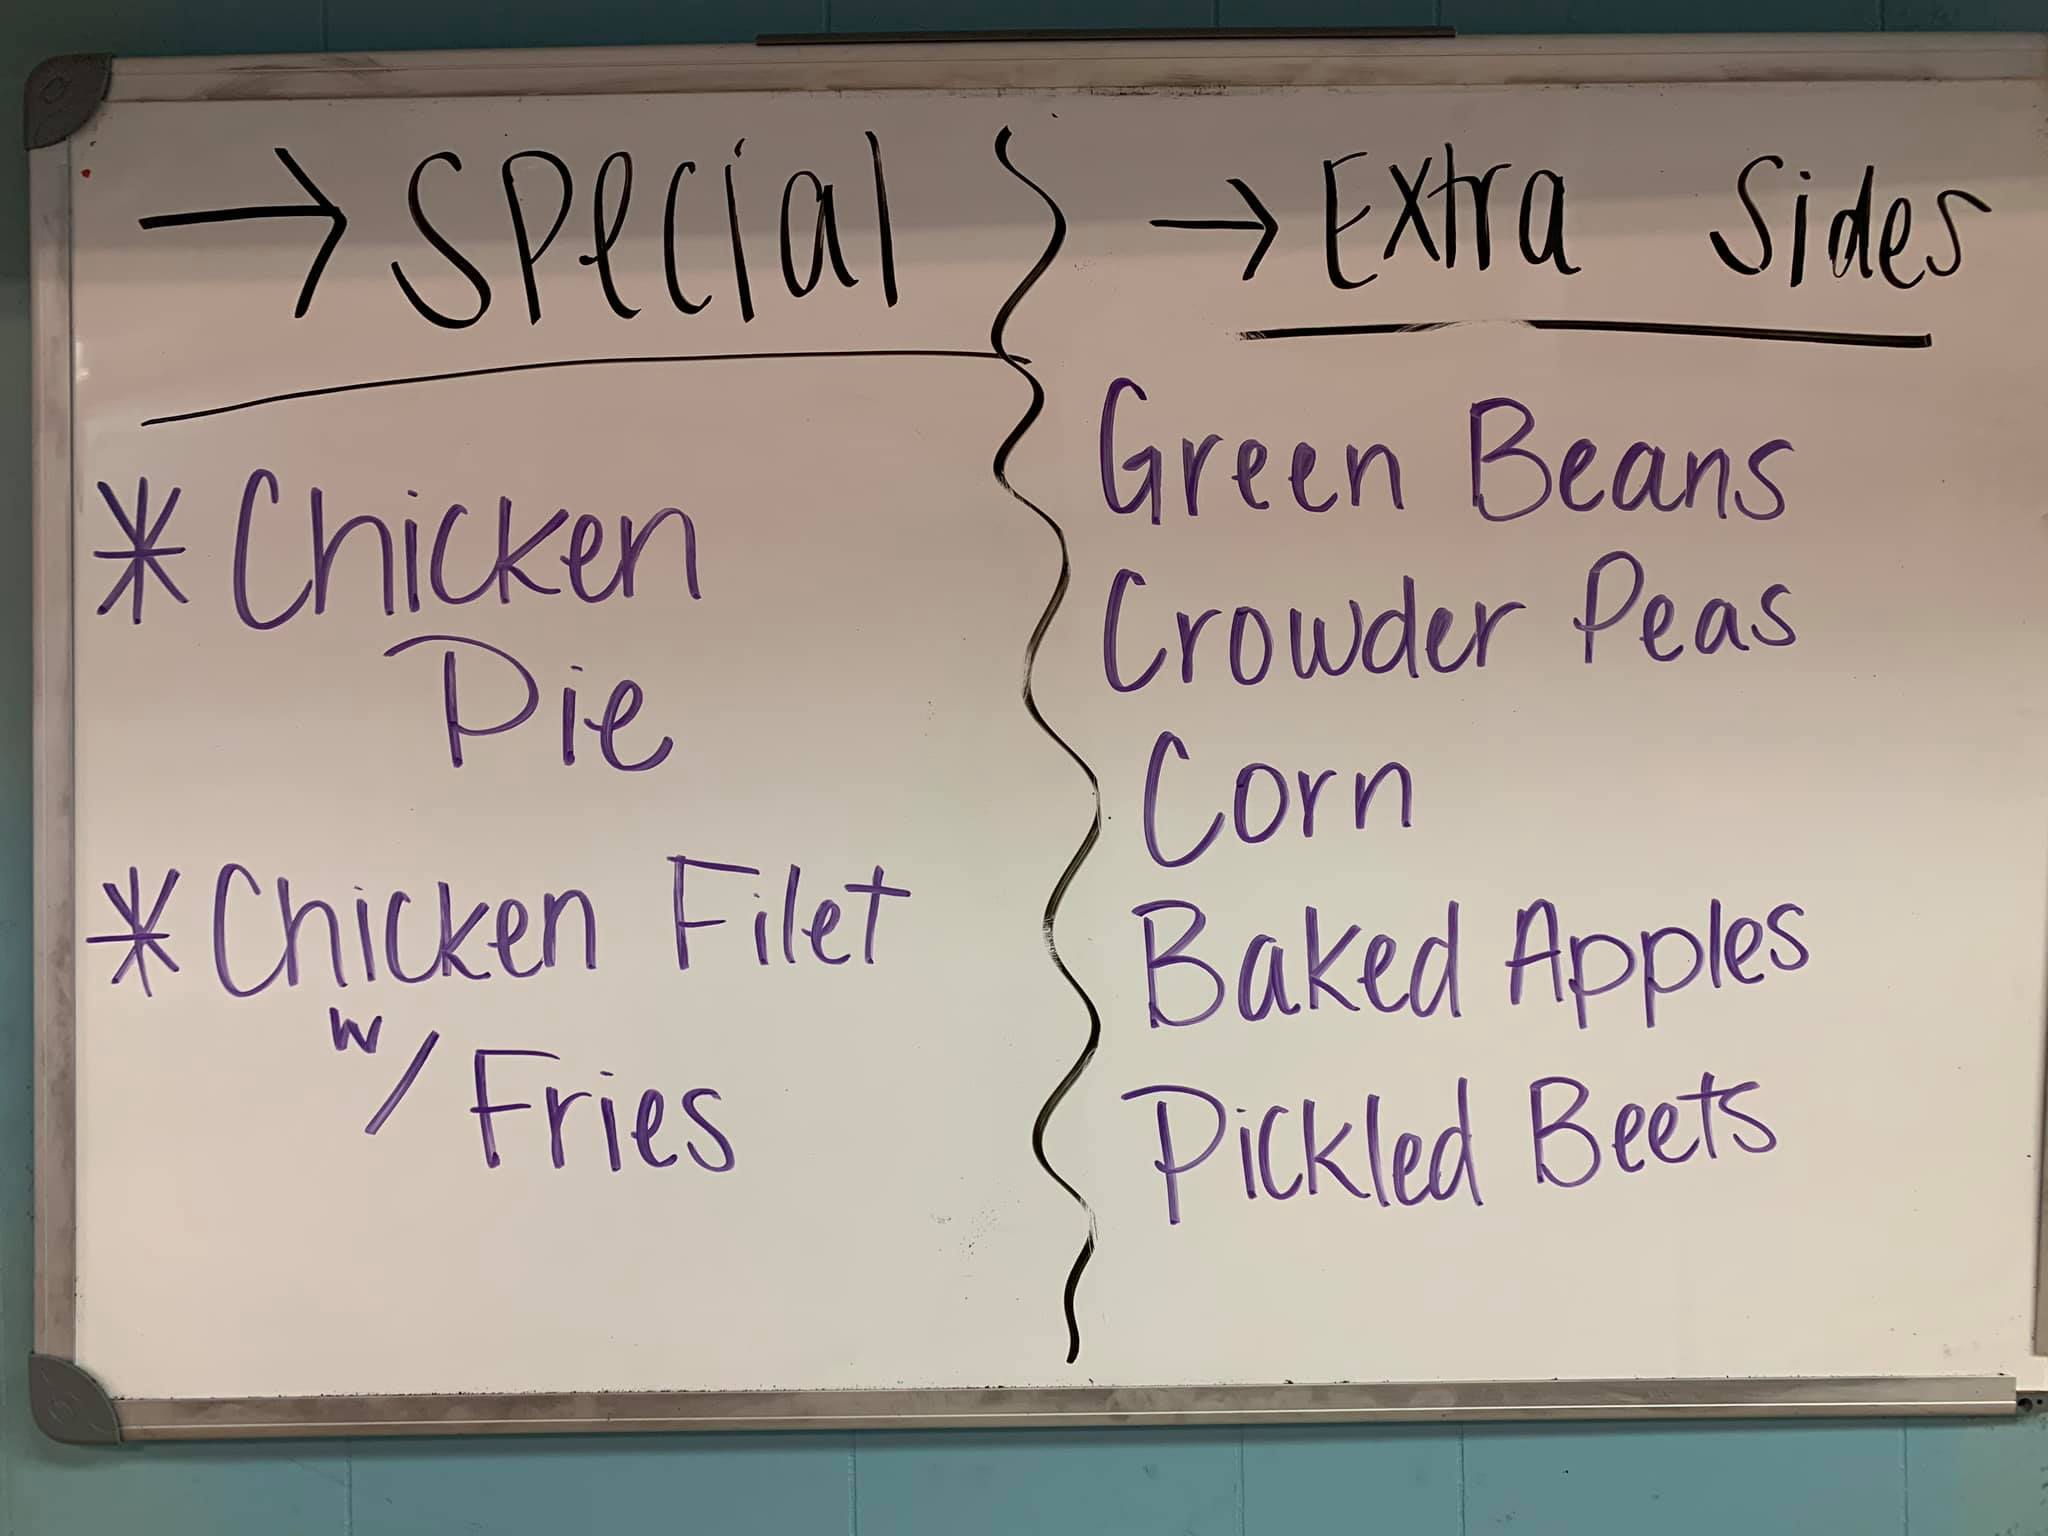 → Special
* Chicken
Pie
* Chicken Filet
w/ Fries
→ Extra Sides
Green Beans
Crowder Peas
Corn
Baked Apples
Pickled Beets